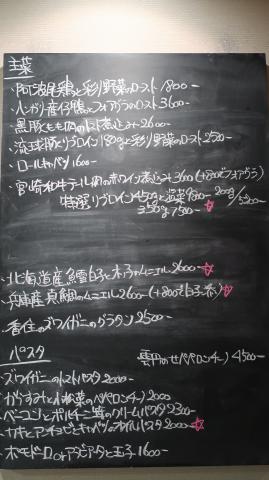 主菜
・阿波尾鶏と彩り野菜のロースト 1800-
・ハンガリー産仔鴨とフォアグラのロースト 3600-
・黒豚もも肉のトマト煮込み 2600-
・琉球豚リブロイン180gと彩り野菜のロースト 2520-
・ロールキャベツ 1600-
・宮崎和牛テール肉の赤ワイン煮込み 3600 (+800でフォアグラ)
特選リブロイン450gと温菜 9800- 200g/5200-
350g 7500- ☆
・北海道産鱈白子と木ノ子のムニエル 2600- ☆
・兵庫産真鯛のムニエル 2600- (+800で白子添) ☆
・香住のズワイガニのグラタン 2500-
パスタ
雲丹のペペロンチーノ 4500-
・ズワイガニのトマトパスタ 2000-
・からすみと小松菜のペペロンチーノ 2000-
・ベーコンとポルチーニ茸のクリームパスタ 2300-
・カキとアンチョビとキャベツのオイルパスタ 2000- ☆
・ポモドーロ or アラビアータと玉子 1600-